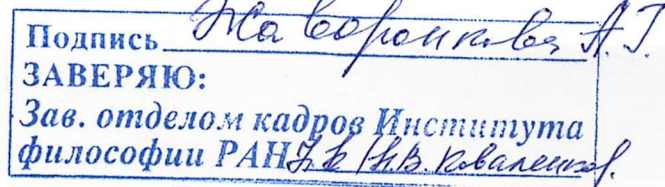 Подпись Жаворонкова А.Г.
ЗАВЕРЯЮ:
Зав. отделом кадров Института
философии РАН Н.В. Коваленко